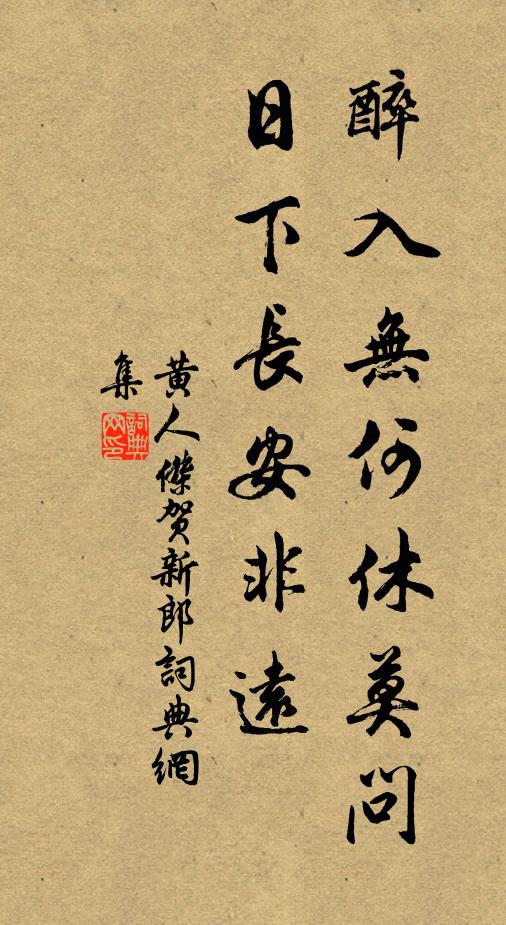 醉入無何休莫問
日下長安非遠
黄人傑賀新郎詞典網
集
詞典
網印